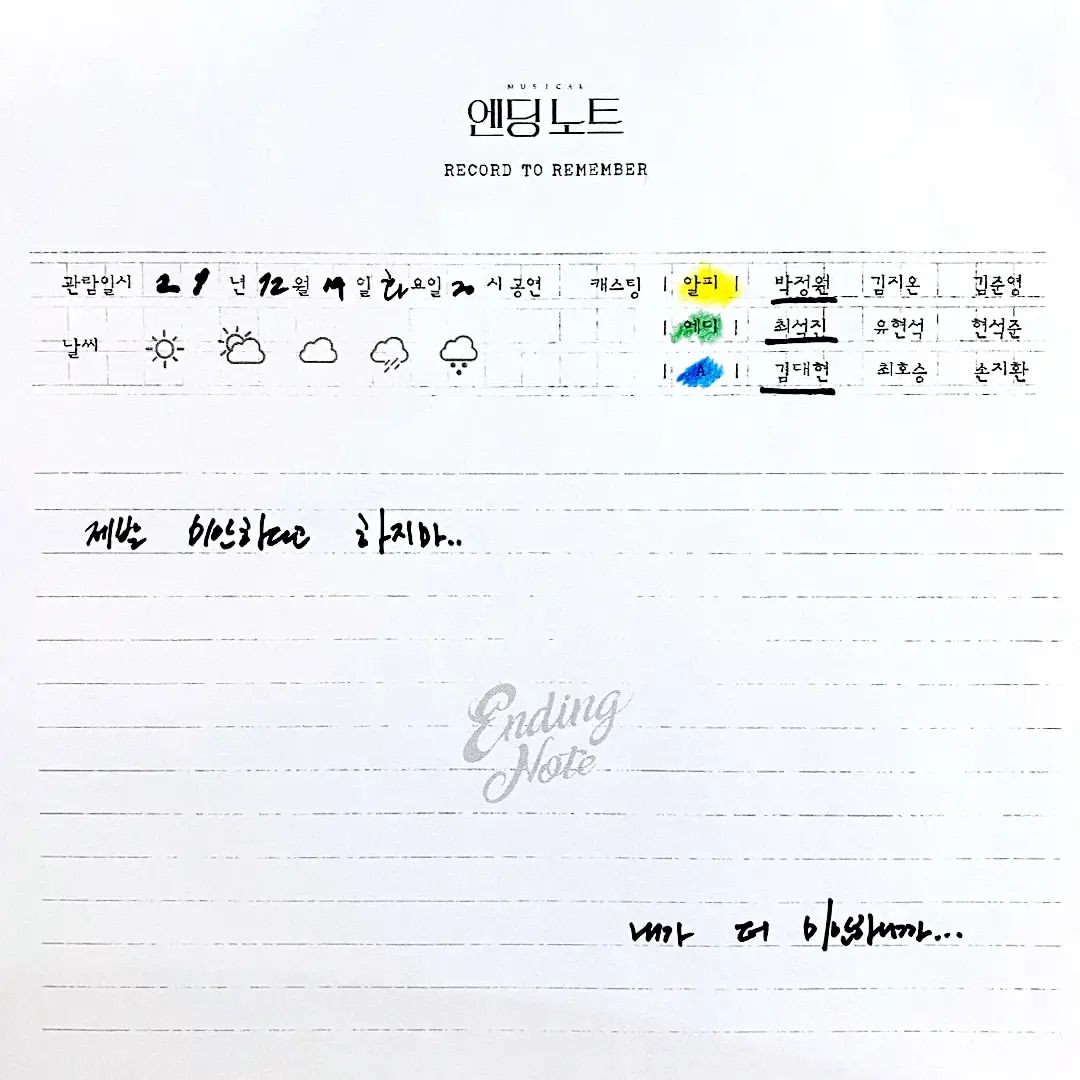 MUSICAL
엔딩 노트
RECORD TO REMEMBER
관람일시 21년 12월 14일 화요일 20시 공연 캐스팅 | 알피 | 박정원 김지온 김준영
| 에디 | 최석진 유현석 현석준
날씨 | A | 김대현 최호승 손지환
제발 미안하다고 하지마..
Ending
Note
내가 더 미안하니까...